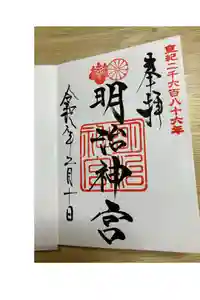 皇紀二千六百八十六年
奉拝
明治神宮
令和八年二月十日